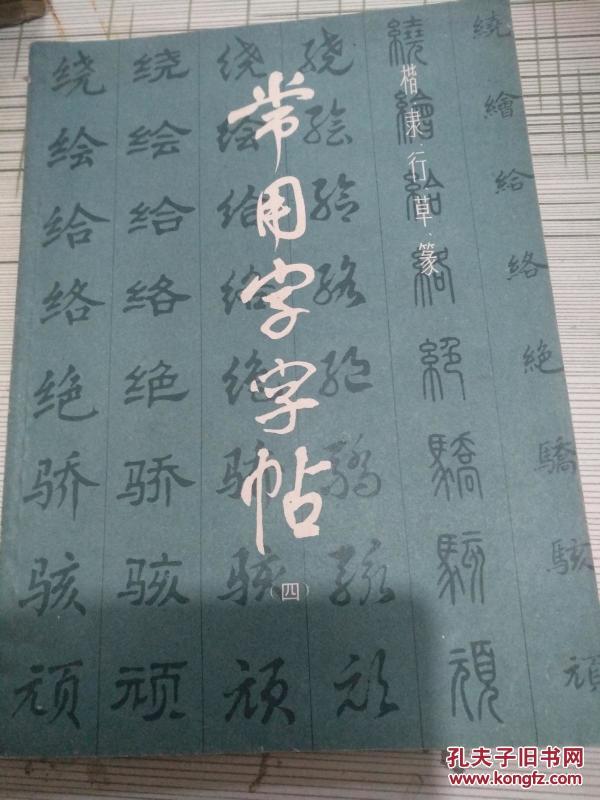 常用字字帖
（四）
楷·隶·行·草·篆
绕 绕 绕 绕 繞 繞
绘 绘 绘 绘 繪 繪
给 给 给 给 給 給
络 络 络 络 絡 絡
绝 绝 绝 绝 絕 絕
骄 骄 骄 骄 驕 驕
骇 骇 骇 骇 駭 駭
顽 顽 顽 顽 頑 頑
孔夫子旧书网
www.kongfz.com